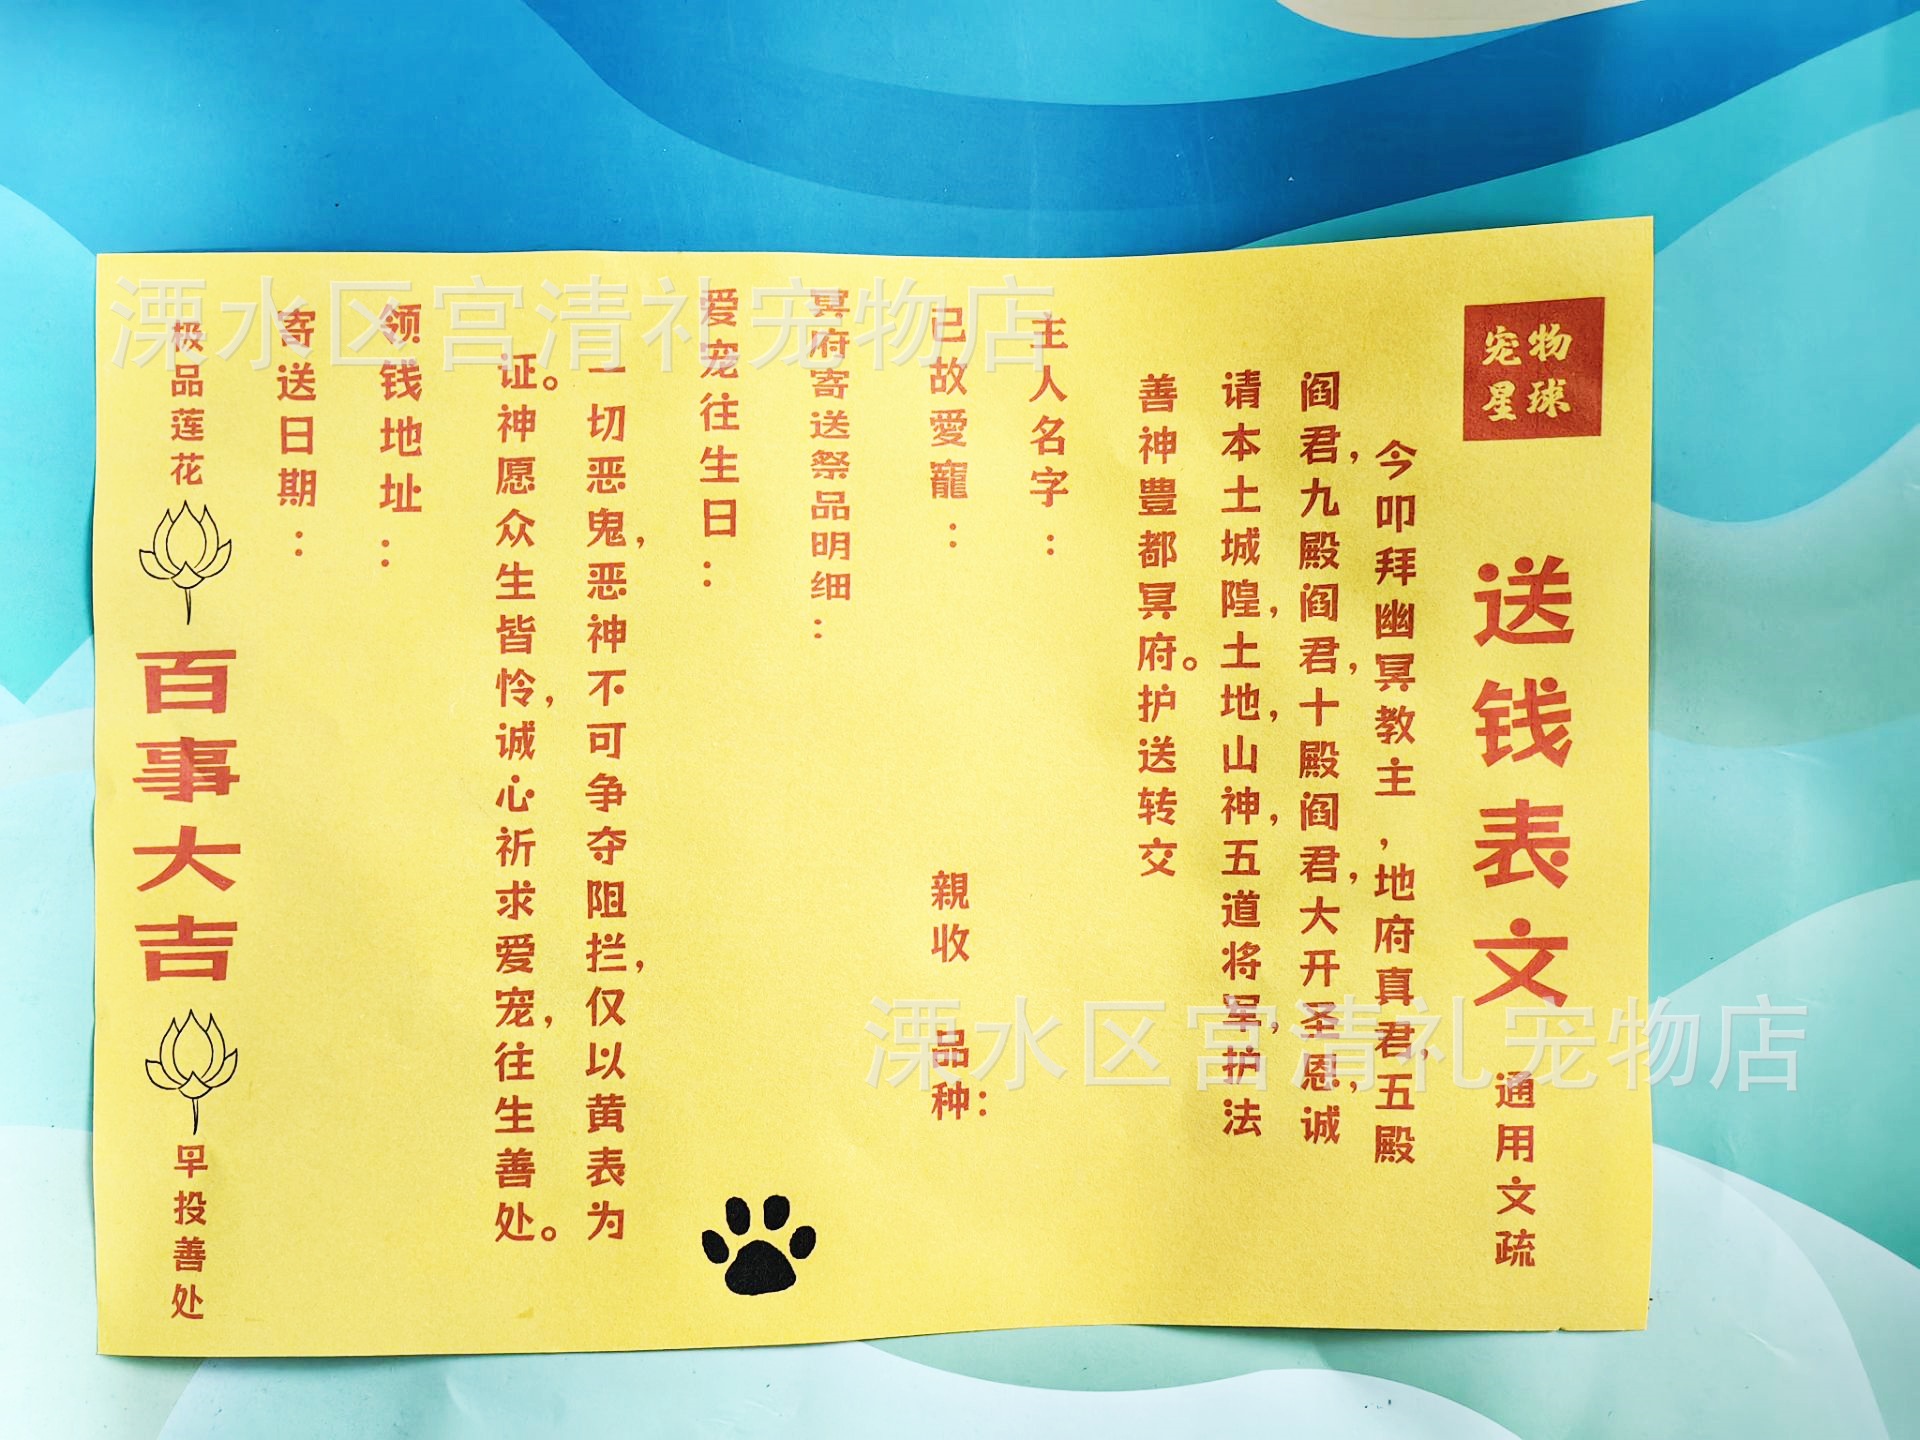 宠物
星球
送钱表文 通用文疏
今叩拜幽冥教主,地府真君,五殿
阎君,九殿阎君,十殿阎君,大开圣恩,诚
请本土城隍,土地,山神,五道将军,护法
善神豊都冥府。护送转交
主人名字:
已故愛寵: 親收 品种:
冥府寄送祭品明细:
爱宠往生日:
一切恶鬼,恶神不可争夺阻拦,仅以黄表为
证。神愿众生皆怜,诚心祈求爱宠,往生善处。
领钱地址:
寄送日期:
极品莲花 百事大吉 早投善处
溧水区宫清礼宠物店
溧水区宫清礼宠物店